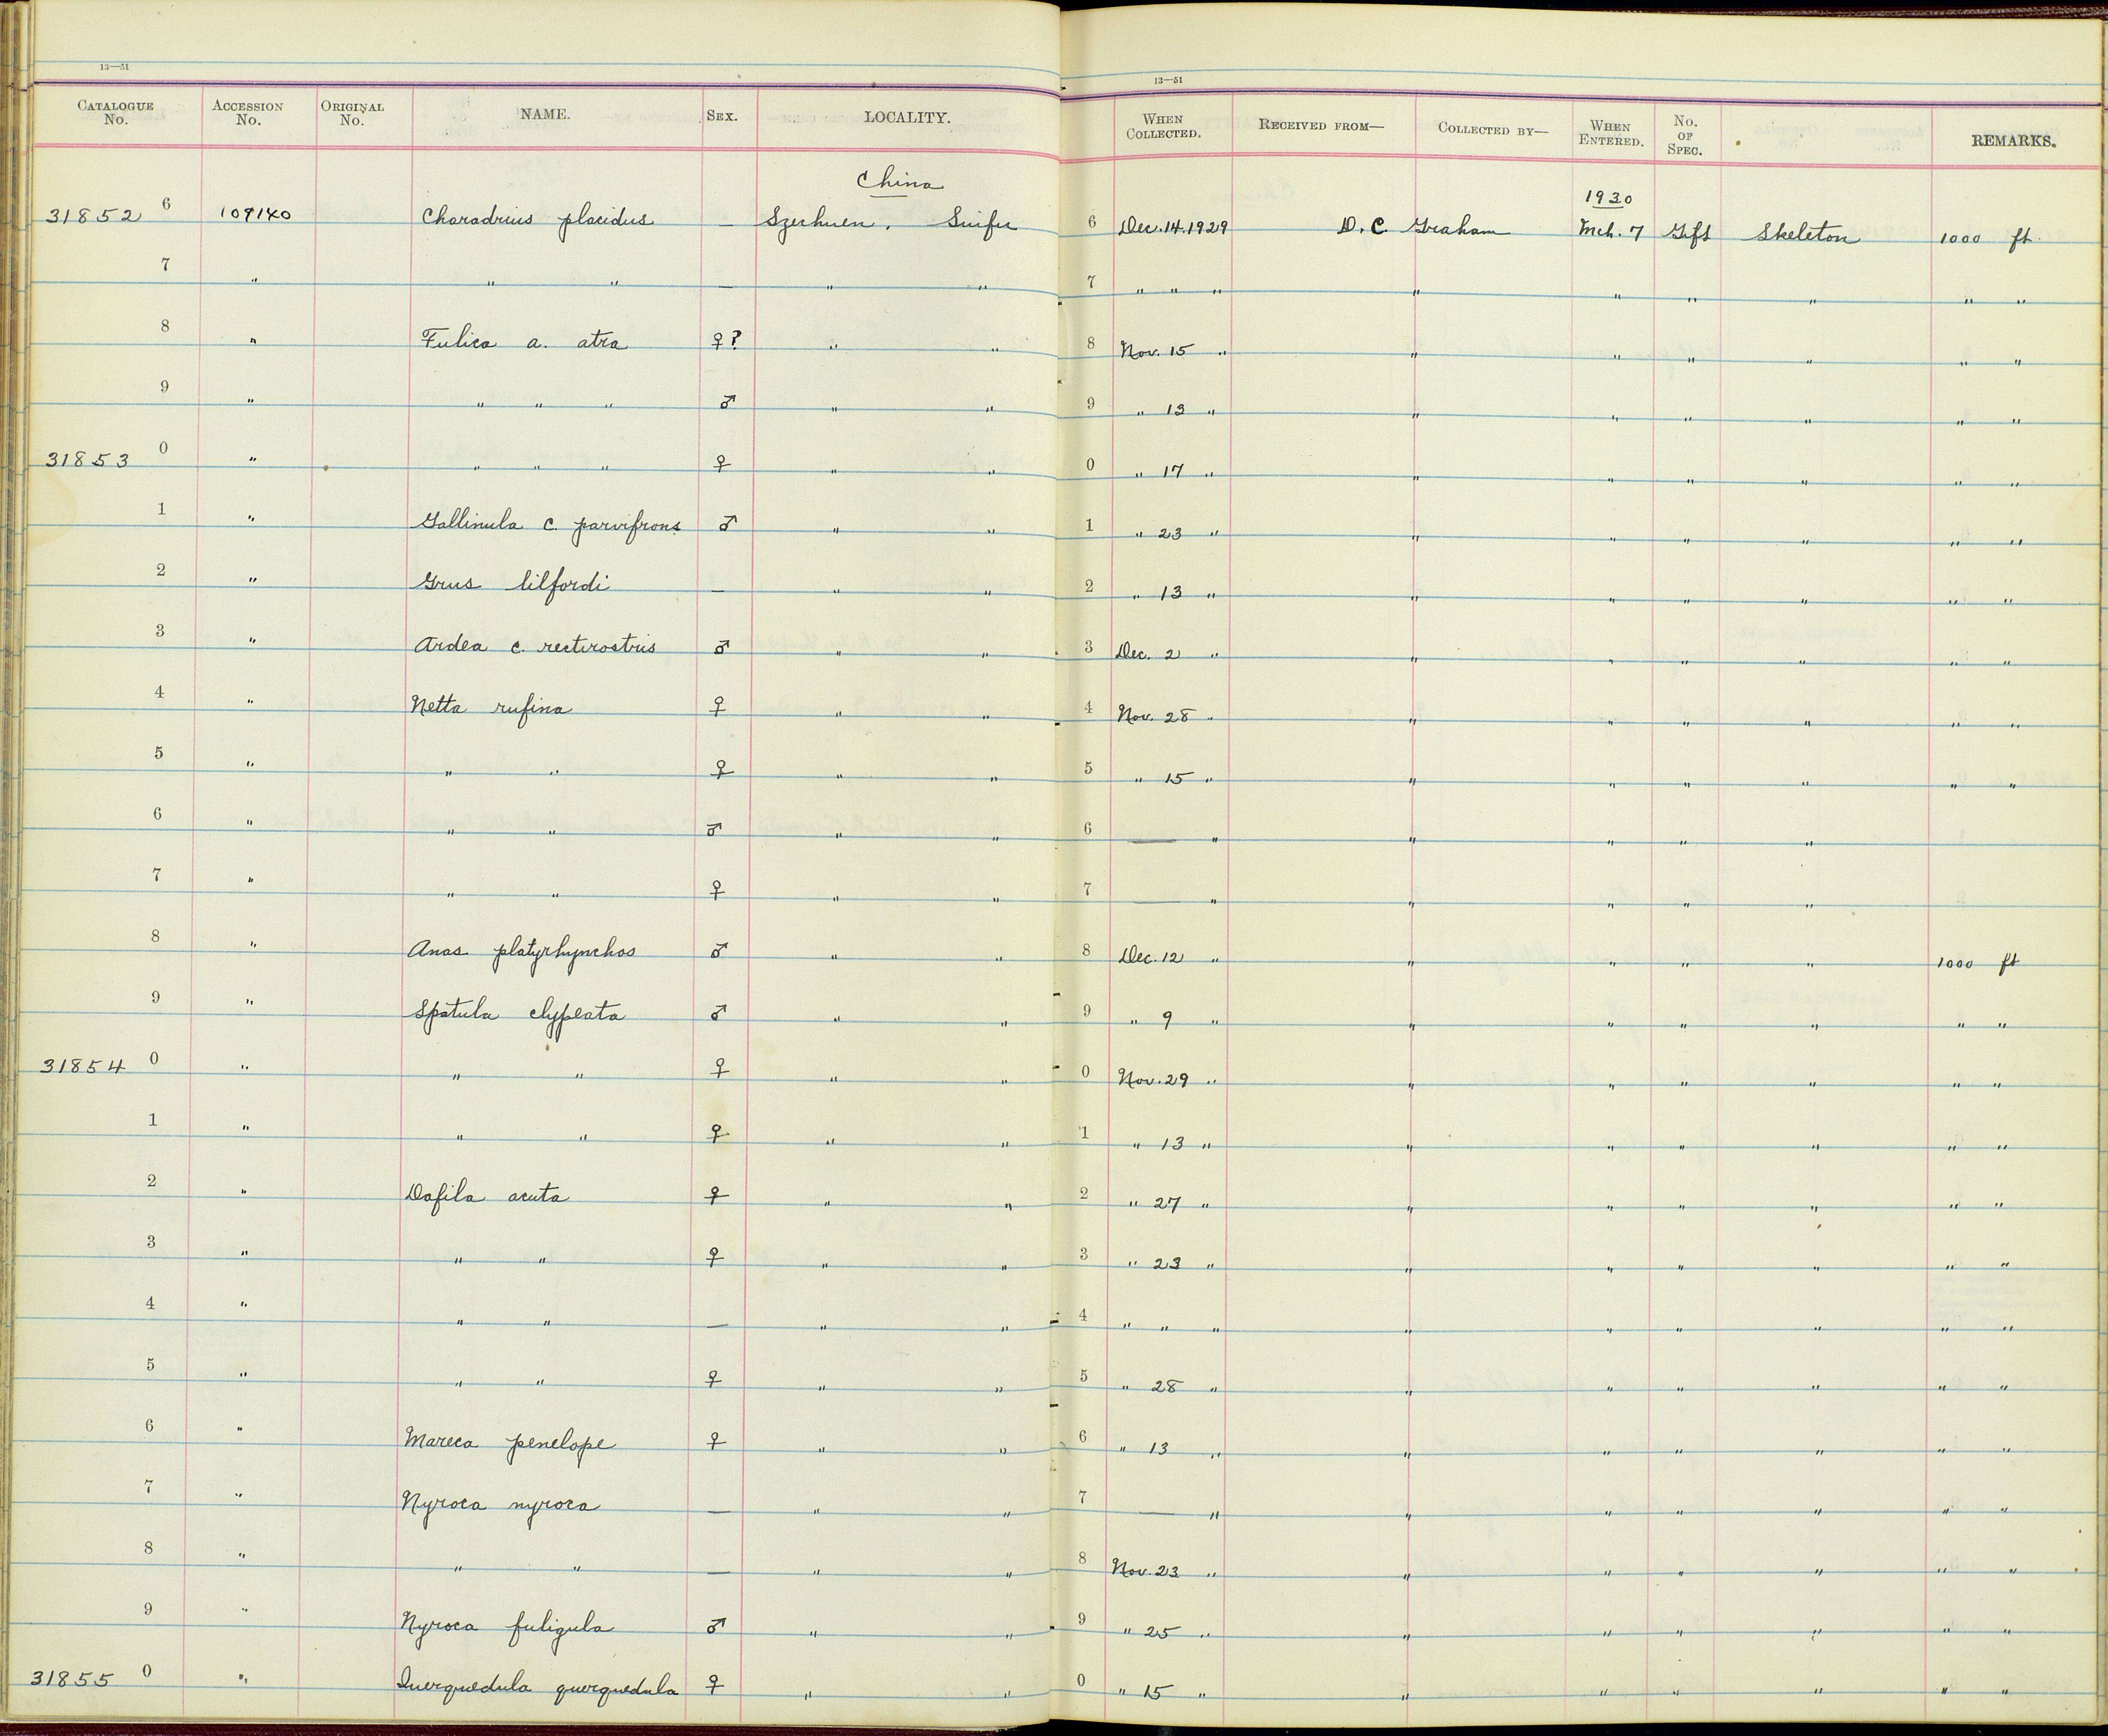 13—51 13—51
CATALOGUE No. ACCESSION No. ORIGINAL No. NAME. SEX. LOCALITY. WHEN COLLECTED. RECEIVED FROM— COLLECTED BY— WHEN ENTERED. No. OF SPEC. REMARKS.
China
1930
31852 6 109140 Charadrius placidus — Szechuen, Suifu 6 Dec. 14. 1929 D. C. Graham Mch. 7 Gift Skeleton 1000 ft.
7 " " " — " " 7 " " " " " " " " "
8 " Fulica a. atra ♀? " " 8 Nov. 15 " " " " " " "
9 " " " " ♂ " " 9 " 13 " " " " " " "
31853 0 " " " " ♀ " " 0 " 17 " " " " " " "
1 " Gallinula c. parvifrons ♂ " " 1 " 23 " " " " " " "
2 " Grus lilfordi — " " 2 " 13 " " " " " " "
3 " Ardea c. rectirostris ♂ " " 3 Dec. 2 " " " " " " "
4 " Netta rufina ♀ " " 4 Nov. 28 " " " " " " "
5 " " " ♀ " " 5 " 15 " " " " " " "
6 " " " ♂ " " 6 — " " " " "
7 " " " ♀ " " 7 — " " " " "
8 " Anas platyrhynchos ♂ " " 8 Dec. 12 " " " " " 1000 ft
9 " Spatula clypeata ♂ " " 9 " 9 " " " " " " "
31854 0 " " " ♀ " " 0 Nov. 29 " " " " " " "
1 " " " ♀ " " 1 " 13 " " " " " " "
2 " Dafila acuta ♀ " " 2 " 27 " " " " " " "
3 " " " ♀ " " 3 " 23 " " " " " " "
4 " " " — " " 4 " " " " " " " " "
5 " " " ♀ " " 5 " 28 " " " " " " "
6 " Mareca penelope ♀ " " 6 " 13 " " " " " " "
7 " Nyroca nyroca — " " 7 — " " " " " " "
8 " " " — " " 8 Nov. 23 " " " " " " "
9 " Nyroca fuligula ♂ " " 9 " 25 " " " " " " "
31855 0 " Querquedula querquedula ♀ " " 0 " 15 " " " " " " "